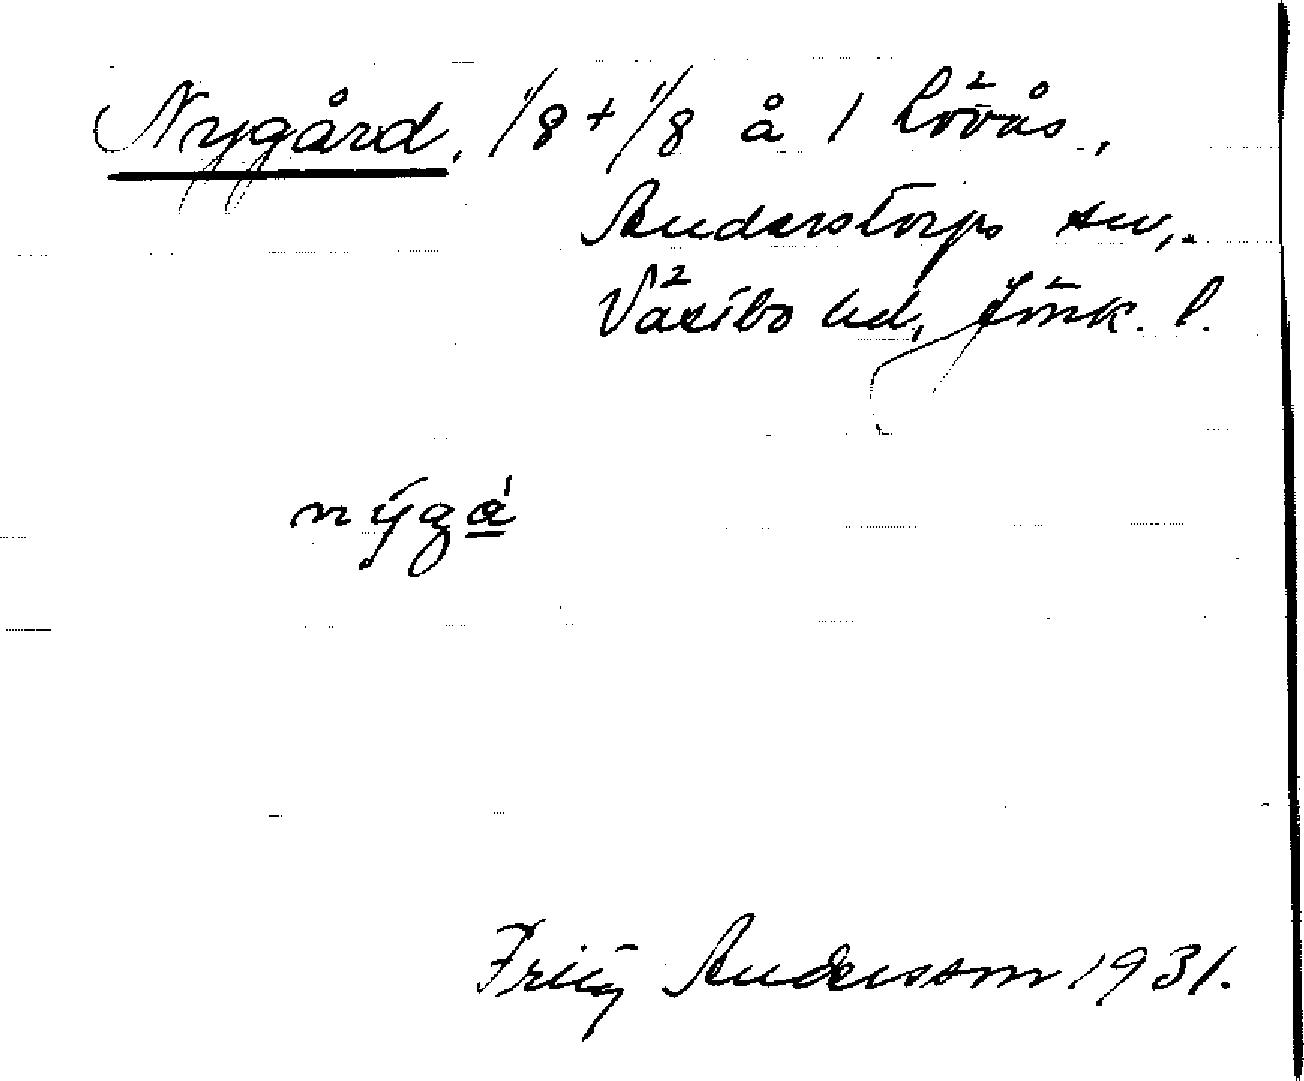 Nygård, 1/8 + 1/8 å 1 Lövås,
Anderstorps sn,
Västbo hd, Jönk. l.
nýgá
Fritz Andersson 1931.